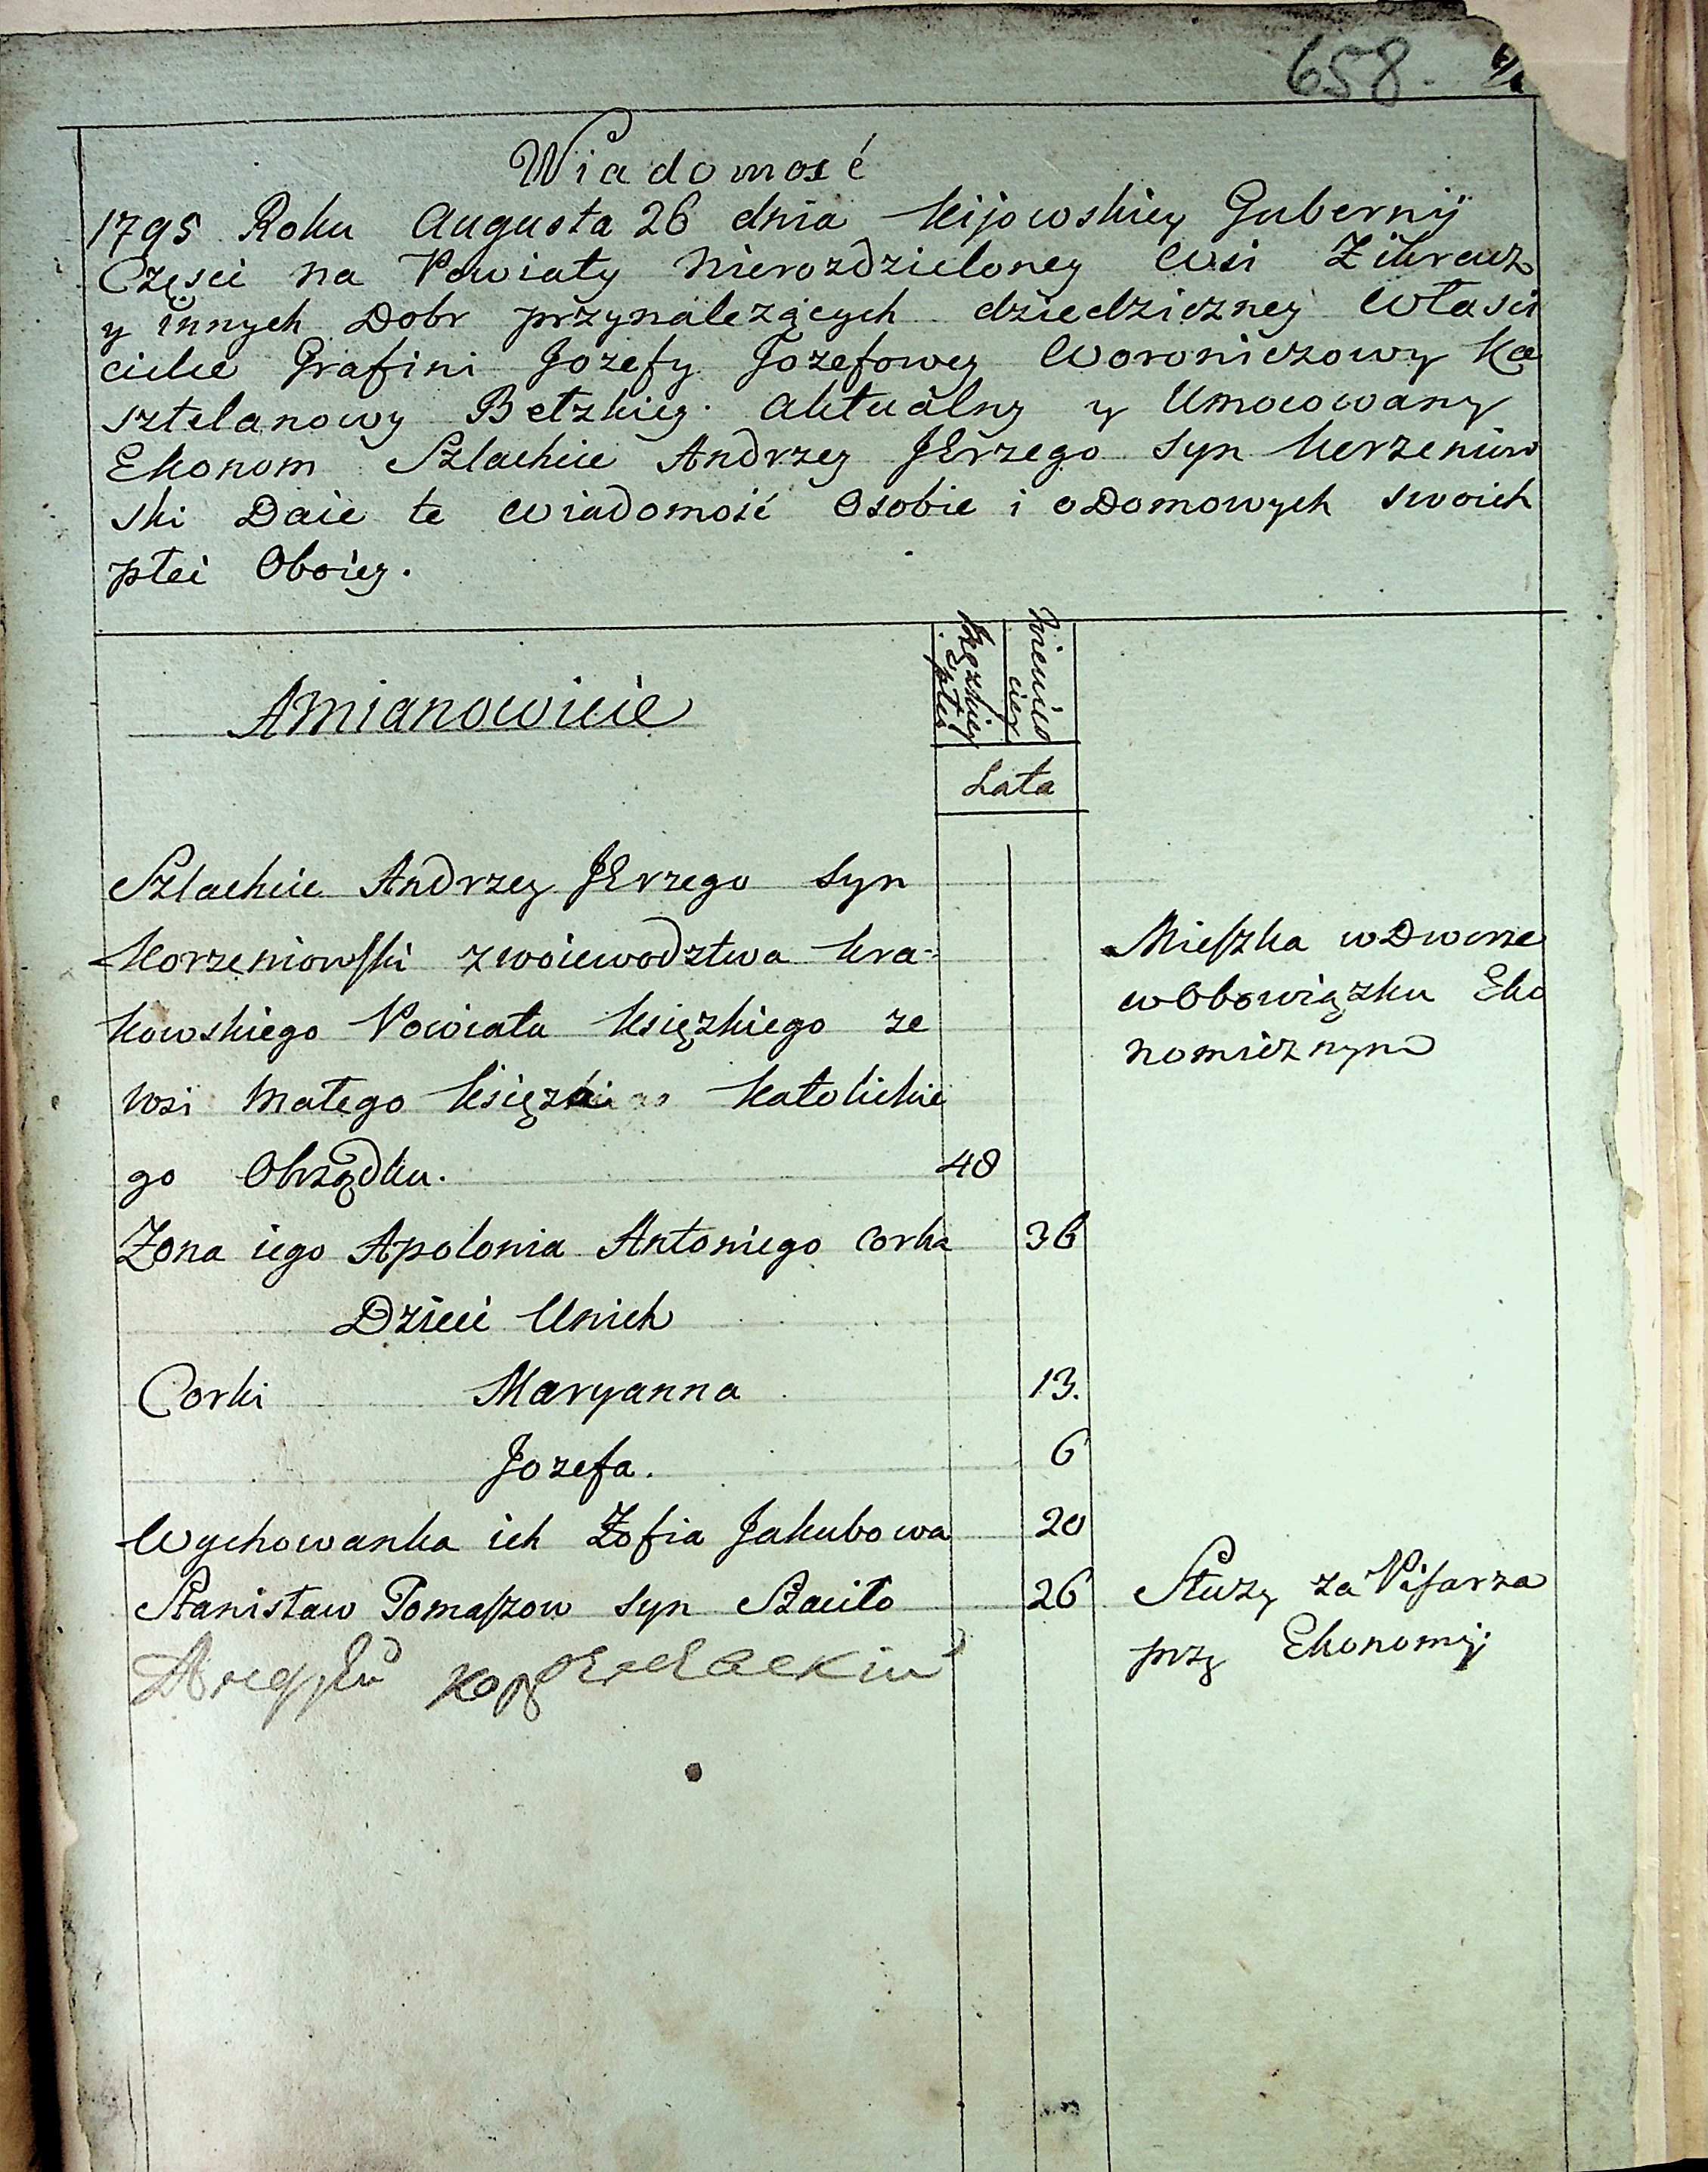 658.
Wiadomosć
1795 Roku Augusta 26 dnia Kijowskiey Gubernij
Częsci na Powiaty Nierozdzieloney Wsi
y innych Dobr przynalezących dziedziczney Własci
cielce Grafini Jozefy Jozefowey Woroniczowy Ka
sztelanowy Bełzkiey. Aktualny y Umocowany
Ekonom Szlachcic Andrzey JErzego Syn Korzeniow
ski Daie te wiadomość Osobie i oDomowych swoich
płci Oboiey.
Męzkiey płci
Lata
AMianowicie
Szlachcic Andrzey JErzego Syn
Korzeniowski zwoiewodztwa Kra-
kowskiego Powiatu Księzkiego ze
wsi Małego Katolickie
go Obrządku. 48
Mieszka wDworze
wObowiązku Eko
nomicznym
Zona iego Apolonia Antoniego Corka 36
Dzieci Unich
Corki Maryanna 13.
Jozefa. 6
Wychowanka ich Zofia Jakubowa 20
Stanisław Tomaszow Syn Szaciło 26 Słuzy za Pisarza
przy Ekonomij